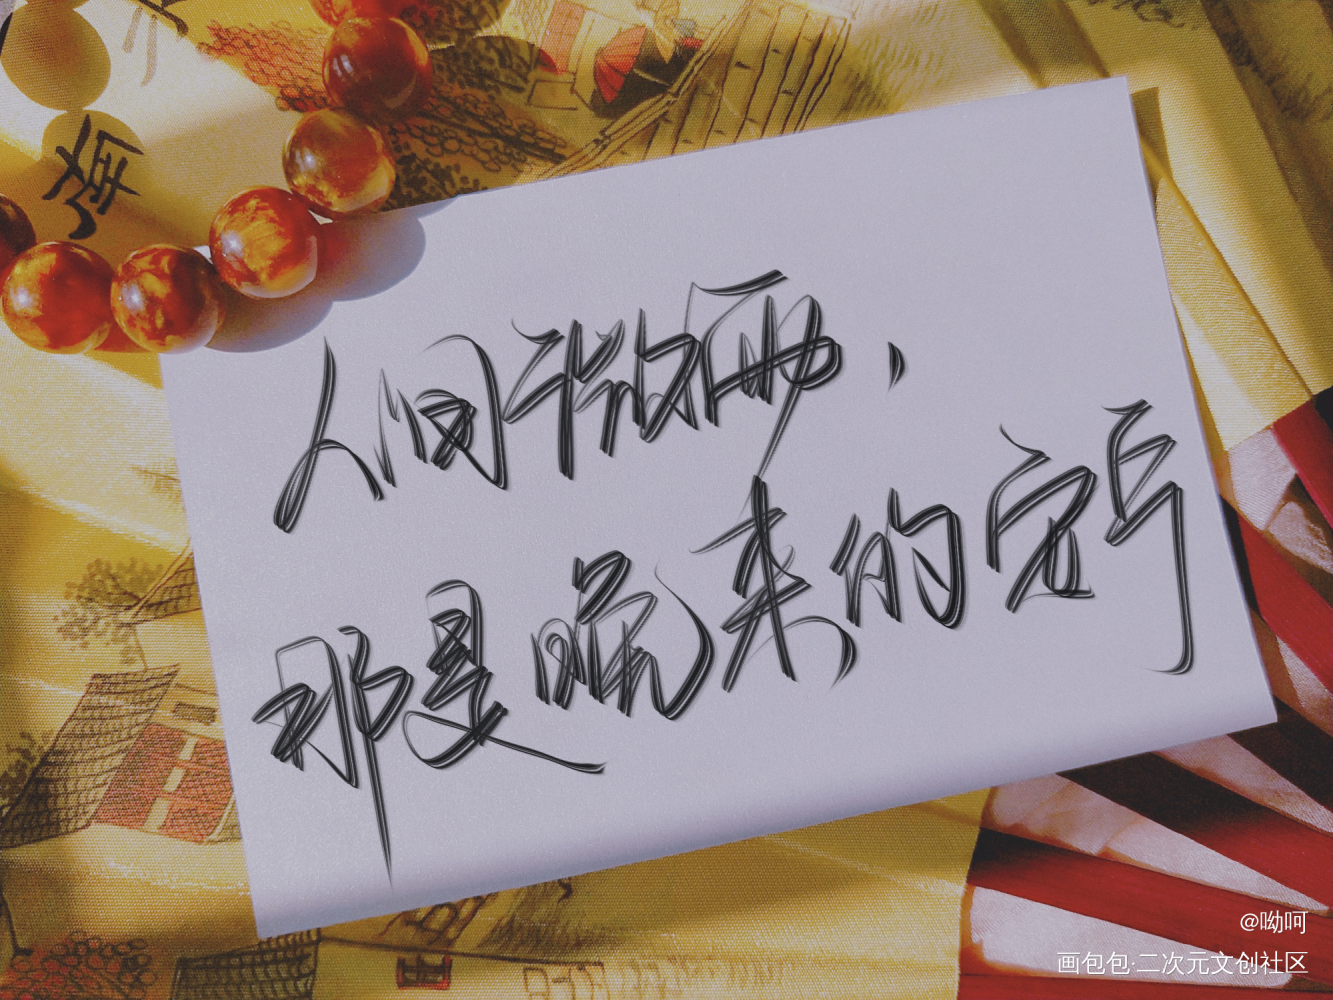 人间微雨，
那是晚来的
@呦呵
画包包·二次元文创社区